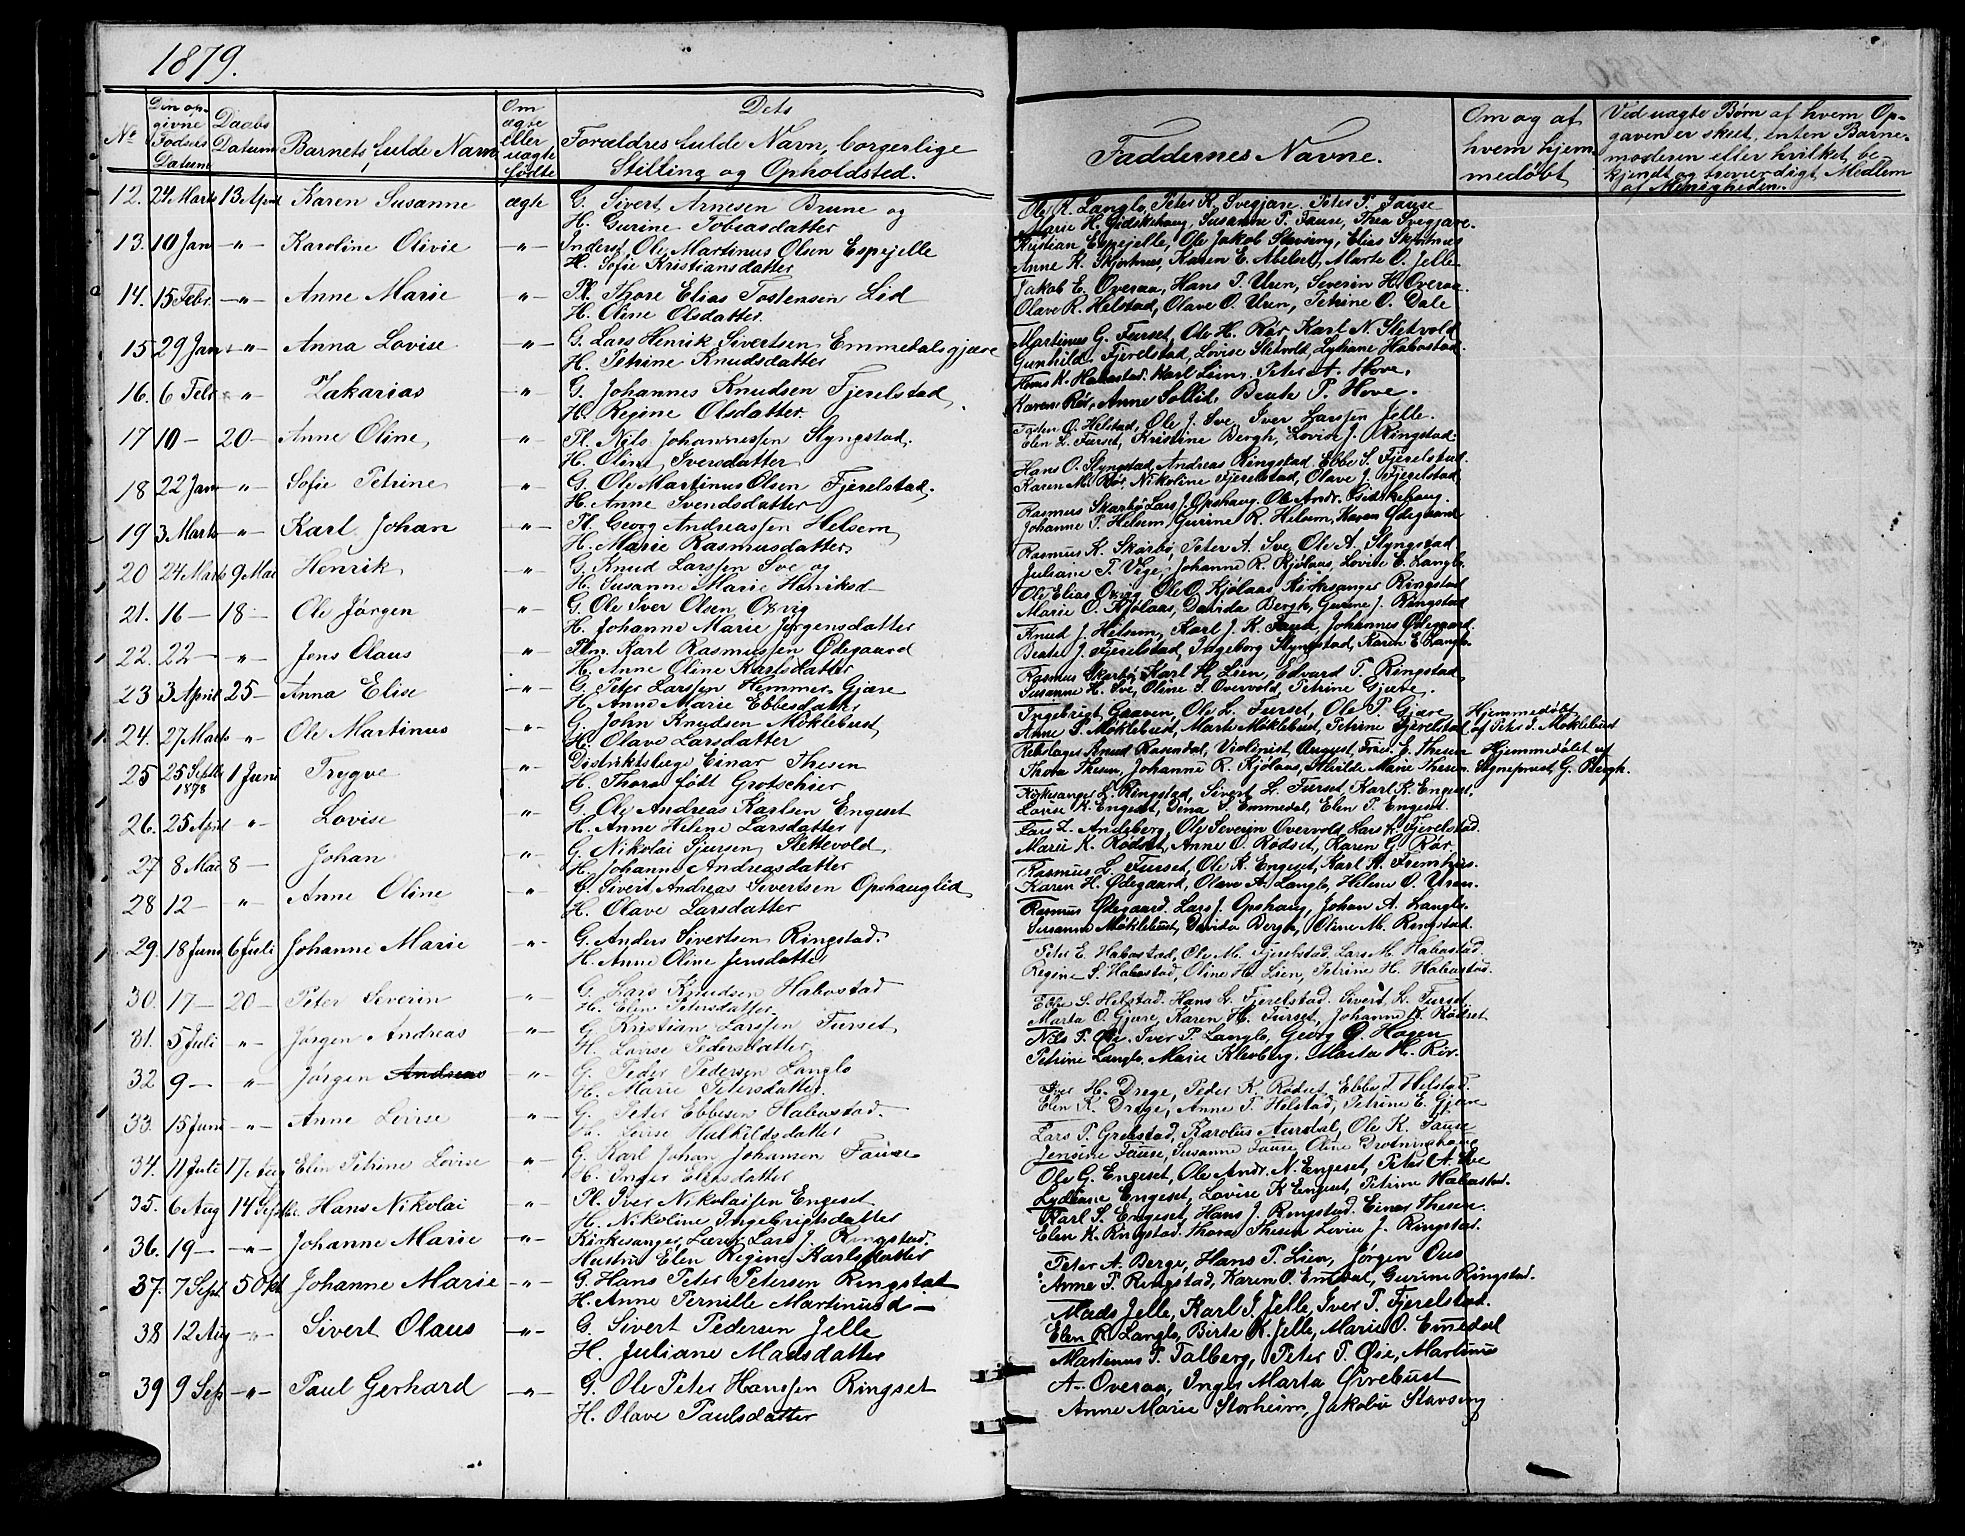 1879.
No
Den op-
givne
Fødsels
Datum
Daabs
Datum
Barnets fulde Navn
Om
ægte
eller
uægte
fødte
Dets
Forældres fulde Navn, borgerlige
Stilling og Opholdsted.
Faddernes Navne.
Om og af
hvem hjem
medøbt
Ved uægte Børn af hvem Op-
gaven er skeet, enten Barne-
moderen eller hvilket be
kjendt og troværdigt Medlem
af Menigheden.
12. 24 Marts 13 April Karen Susanne ægte G. Sivert Arnesen Brune og
H. Gurine Tobiasdatter
Ole K. Langlo, Peter K. Svegjære. Peter P. Fause
Marie H. Gidskehaug, Susanne P. Fause, Thea Svegjære.
13. 10 Jan -"- Karoline Olivie -"- Inderst Ole Martinus Olsen Espejelle
H. Sofie Kristiansdatter
Kristian Espejelle, Ole Jakob Stavseng, Elias Skjortnes
Anne K. Skjortnes, Karen E. Abelset, Marte O. Jelle
14. 15 Febr -"- Anne Marie -"- Pl. Thore Elias Tostensen Lid
H. Oline Olsdatter.
Jakob E. Overaa, Hans I. Uren, Severin H. Overaa.
Olave R. Helstad, Olave O. Uren, Petrine O. Dale
15 29 Jan -"- Anna Lovise -"- G. Lars Henrik Sivertsen Emmedalsgjære
H. Petrine Knudsdatter
Martinus G. Furset, Ole H. Rør, Karl N. Sletvold
Gunhild Fjerelstad, Lovise Sletvold, Lydiane Habostad.
16. 6 Febr -"- Zakarias -"- G. Johannes Knudsen Fjerelstad
H. Regine Olsdatter.
Hans K. Habostad. Karl Lien. Peter A. Hove.
Karen Rør, Anne Sollid, Beate P. Hove.
17 10 - 20 - Anne Oline -"- Pl. Nils Johannessen Slyngstad.
H. Oline Iversdatter
Tosten O. Helstad, Ole J. Sve, Iver Larssen Jelle.
Elen L. Furset, Kristine Bergh, Lovise J. Ringstad.
18 22 Jan -"- Sofie Petrine -"- G. Ole Martinus Olsen Fjerelstad.
H. Anne Svendsdatter
Hans O. Slyngstad, Andreas Ringstad, Ebbe S. Fjerelstad.
Karen M. Rør, Nikoline Fjerelstad, Olave J. Fjerelstad
19 3 Marts -"- Karl Johan -"- Pl. Georg Andreassen Helsem
H. Marie Rasmusdatter
Rasmus Skarbø, Lars J. Opshaug. Ole Andr. Gidskehaug.
Johanne P. Helsem, Gurine R. Helsem, Karen Ødegaard
20 24 Marts 9 Mai Henrik -"- G. Knud Larssen Sve og
H. Susanne Marie Henriksd-
Rasmus K. Skarbø, Peter A. Sve, Ole A. Slyngstad
Juliane T. Vige, Johanne R. Kjølaas, Lovise E. Langlo.
21. 16 - 18 - Ole Jørgen -"- G. Ole Iver Olsen Oxvig
H. Johanne Marie Jørgensdatter
Ole Elias Oxvig, Ole O. Kjølaas, Kirksanger Ringstad
Marie O. Kjølaas, Davida Bergh, Gurine J. Ringstad
22. 22 - -"- Jens Olaus -"- Plm. Karl Rasmussen Ødegaard
H. Anne Oline Karlsdatter
Knud J. Helsem, Karl J. K. Faus, Johannes Ødegaard.
Beate J. Fjerelstad, Ingeborg Slyngstad, Karen E Langlo.
23 3 April 25 - Anna Elise -"- G. Peter Larssen Hemmer Gjære
H. Anne Marie Ebbesdatter
Rasmus Skarbø, Karl H. Lien, Edvard T. Ringstad
Susanne H. Sve, Oline S. Overvold, Petrine Gjære.
24. 27 Marts -"- Ole Martinus -"- G. John Knudsen Møklebust
H. Olave Larsdatter
Ingebrigt Gaaven, Ole L. Furset, Ole P. Gjære
Anne S. Møklebust, Marte Møklebust, Petrine Fjerelstad
Hjemmedøbt
af Peter I. Møklebust
25 25 Septbr
1878 1 Juni Trygve -"- Distriktslæge Einar Thesen
H. Thora født Grotschier
Rebslager Knud Rosendal, Violinist August Fries, E. Thesen
Thora Thesen, Johanne R. Kjølaas, Mathilde Marie Thesen.
Hjemmedøbt af
Sognepræst G. Bergh.
26. 25 April -"- Lovise -"- G. Ole Andreas Karlsen Engeset
H. Anne Helene Larsdatter
Kirkesanger L. Ringstad, Sivert L. Furset, Karl K. Engeset.
Lovise K. Engeset, Dina S. Emmedal, Elen P. Engeset.
27 8 Mai 8 - Johan -"- G. Nikolai Sjursen Slettevold
H. Johanne Andreasdatter
Lars L. Andsberg, Ole Severin Overvold, Lars K. Fjerelstad.
Marie K. Rødset, Anne O. Rødset, Karen G. Rør
28 12 - -"- Anne Oline -"- G. Sivert Andreas Sivertsen Opshauglid
H. Olave Larsdatter
Rasmus L. Furset, Ole K. Engeset, Karl A. Fremhus.
Karen H. Ødegaard, Olave A. Langlo, Helene O. Uren.
29. 18 Juni 6 Juli Johanne Marie -"- G. Anders Sivertsen Ringstad.
H. Anne Oline Jensdatter
Rasmus Ødegaard. Lars J. Opshaug, Johan A. Langlo.
Susanne Møklebust, Davida Bergh, Oline M. Ringstad.
30. 17 - 20 - Peter Severin -"- G. Lars Knudsen Habostad
H. Elen Petersdatter
Peter E. Habostad, Ole M. Fjerelstad. Lars M. Habostad.
Regine S. Habostad, Oline H. Lien, Petrine H. Habostad.
31. 5 Juli -"- Jørgen Andreas -"- G. Kristian Larssen Furset
H. Lovise Pedersdatter
Ebbe S. Helstad. Hans L. Fjerelstad. Sivert L. Furset.
Marta O. Gjære, Karen H. Furset, Johanne K. Rødset
32 9 - -"- Jørgen Andreas -"- G. Peder Pedersen Langlo
H. Marie Petersdatter
Nils P. Øie. Iver P. Langlo, Georg G. Hagen
Petrine Langlo. Marie Klevberg. Marta H. Rør.
33. 15 Juni -"- Anne Lovise -"- G. Peter Ebbesen Habostad.
H. Lovise Halkildsdatter
Iver H. Drege, Peder K. Rødset, Ebbe T. Helstad.
Elen K. Drege, Anne T. Helstad, Petrine E. Gjære
34. 11 Juli 17 Aug Elen Petrine Lovise -"- G. Karl Johan Johansen Fause
H. Inger Eliasdatter
Lars P. Grebstad, Karolus Aursdal, Ole K. Fause
Jensine Fause, Susanne Fause, Oline Drotninghaug
35. 6 Aug 14 Septbr. Hans Nikolai -"- Pl. Iver Nikolaissen Engeset
H. Nikoline Ingebrigtsdatter
Ole G. Engeset, Ole Andr. N. Engeset, Peter A. Sve
Lydiane Engeset, Lovise K Engeset, Petrine Habostad.
36. 19 - -"- Johanne Marie -"- Kirkesanger, Lærer Lars J. Ringstad.
Hustru Elen Regine Karlsdatter
Karl S. Engeset, Hans J. Ringstad. Einar Thesen.
Elen K. Ringstad. Thora Thesen Lovise J. Ringstad.
37. 7 Sept 5 Okt Johanne Marie -"- G. Hans Peter Petersen Ringstad
H. Anne Pernille Martinusd-
Peter A. Berge, Hans P. Lien, Jørgen Ous
Anne P. Ringstad, Karen O. Emdal, Gurine Ringstad.
38 12 Aug -"- Sivert Olaus -"- G. Sivert Pedersen Jelle
H. Juliane Madsdatter
Mads Jelle, Karl I. Jelle, Iver P. Fjerelstad.
Elen R. Langlo, Birte K. Jelle, Marie O. Emedal
39 9 Sep -"- Paul Gerhard -"- G. Ole Peter Hanssen Ringset
H. Olave Paulsdatter
Martinus P. Talberg, Peter P. Øie, Martinus
A. Overaa, Inger Marta Øvrebust
Anne Marie Storheim, Jakobie Stavseng